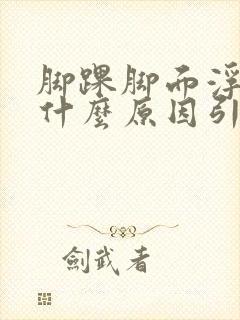 脚踝脚而浮
什麼原因引
劍武者